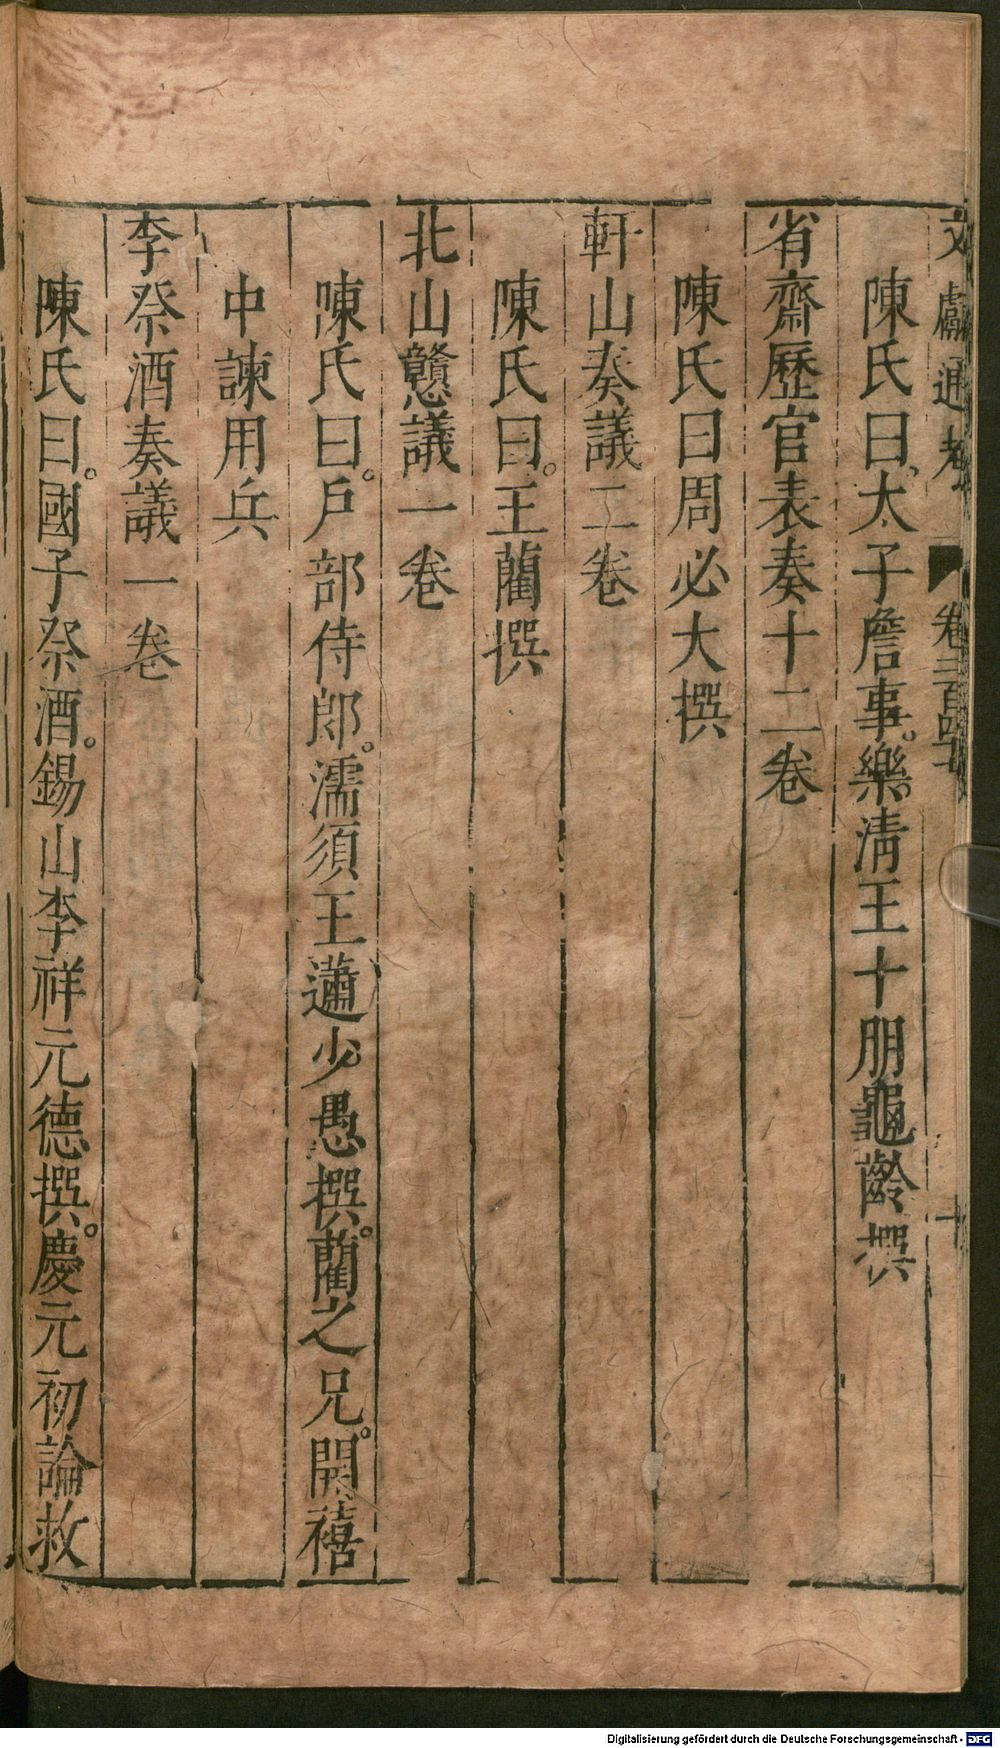 文獻通考 卷二百四十七 十
陳氏曰太子詹事樂清王十朋龜齡撰
省齋歷官表奏十二卷
陳氏曰周必大撰
軒山奏議二卷
陳氏曰王藺撰
北山戅議一卷
陳氏曰戶部侍郎濡須王薳少愚撰藺之兄開禧
中諫用兵
李祭酒奏議一卷
陳氏曰國子祭酒錫山李祥元德撰慶元初論救
Digitalisierung gefördert durch die Deutsche Forschungsgemeinschaft - DFG